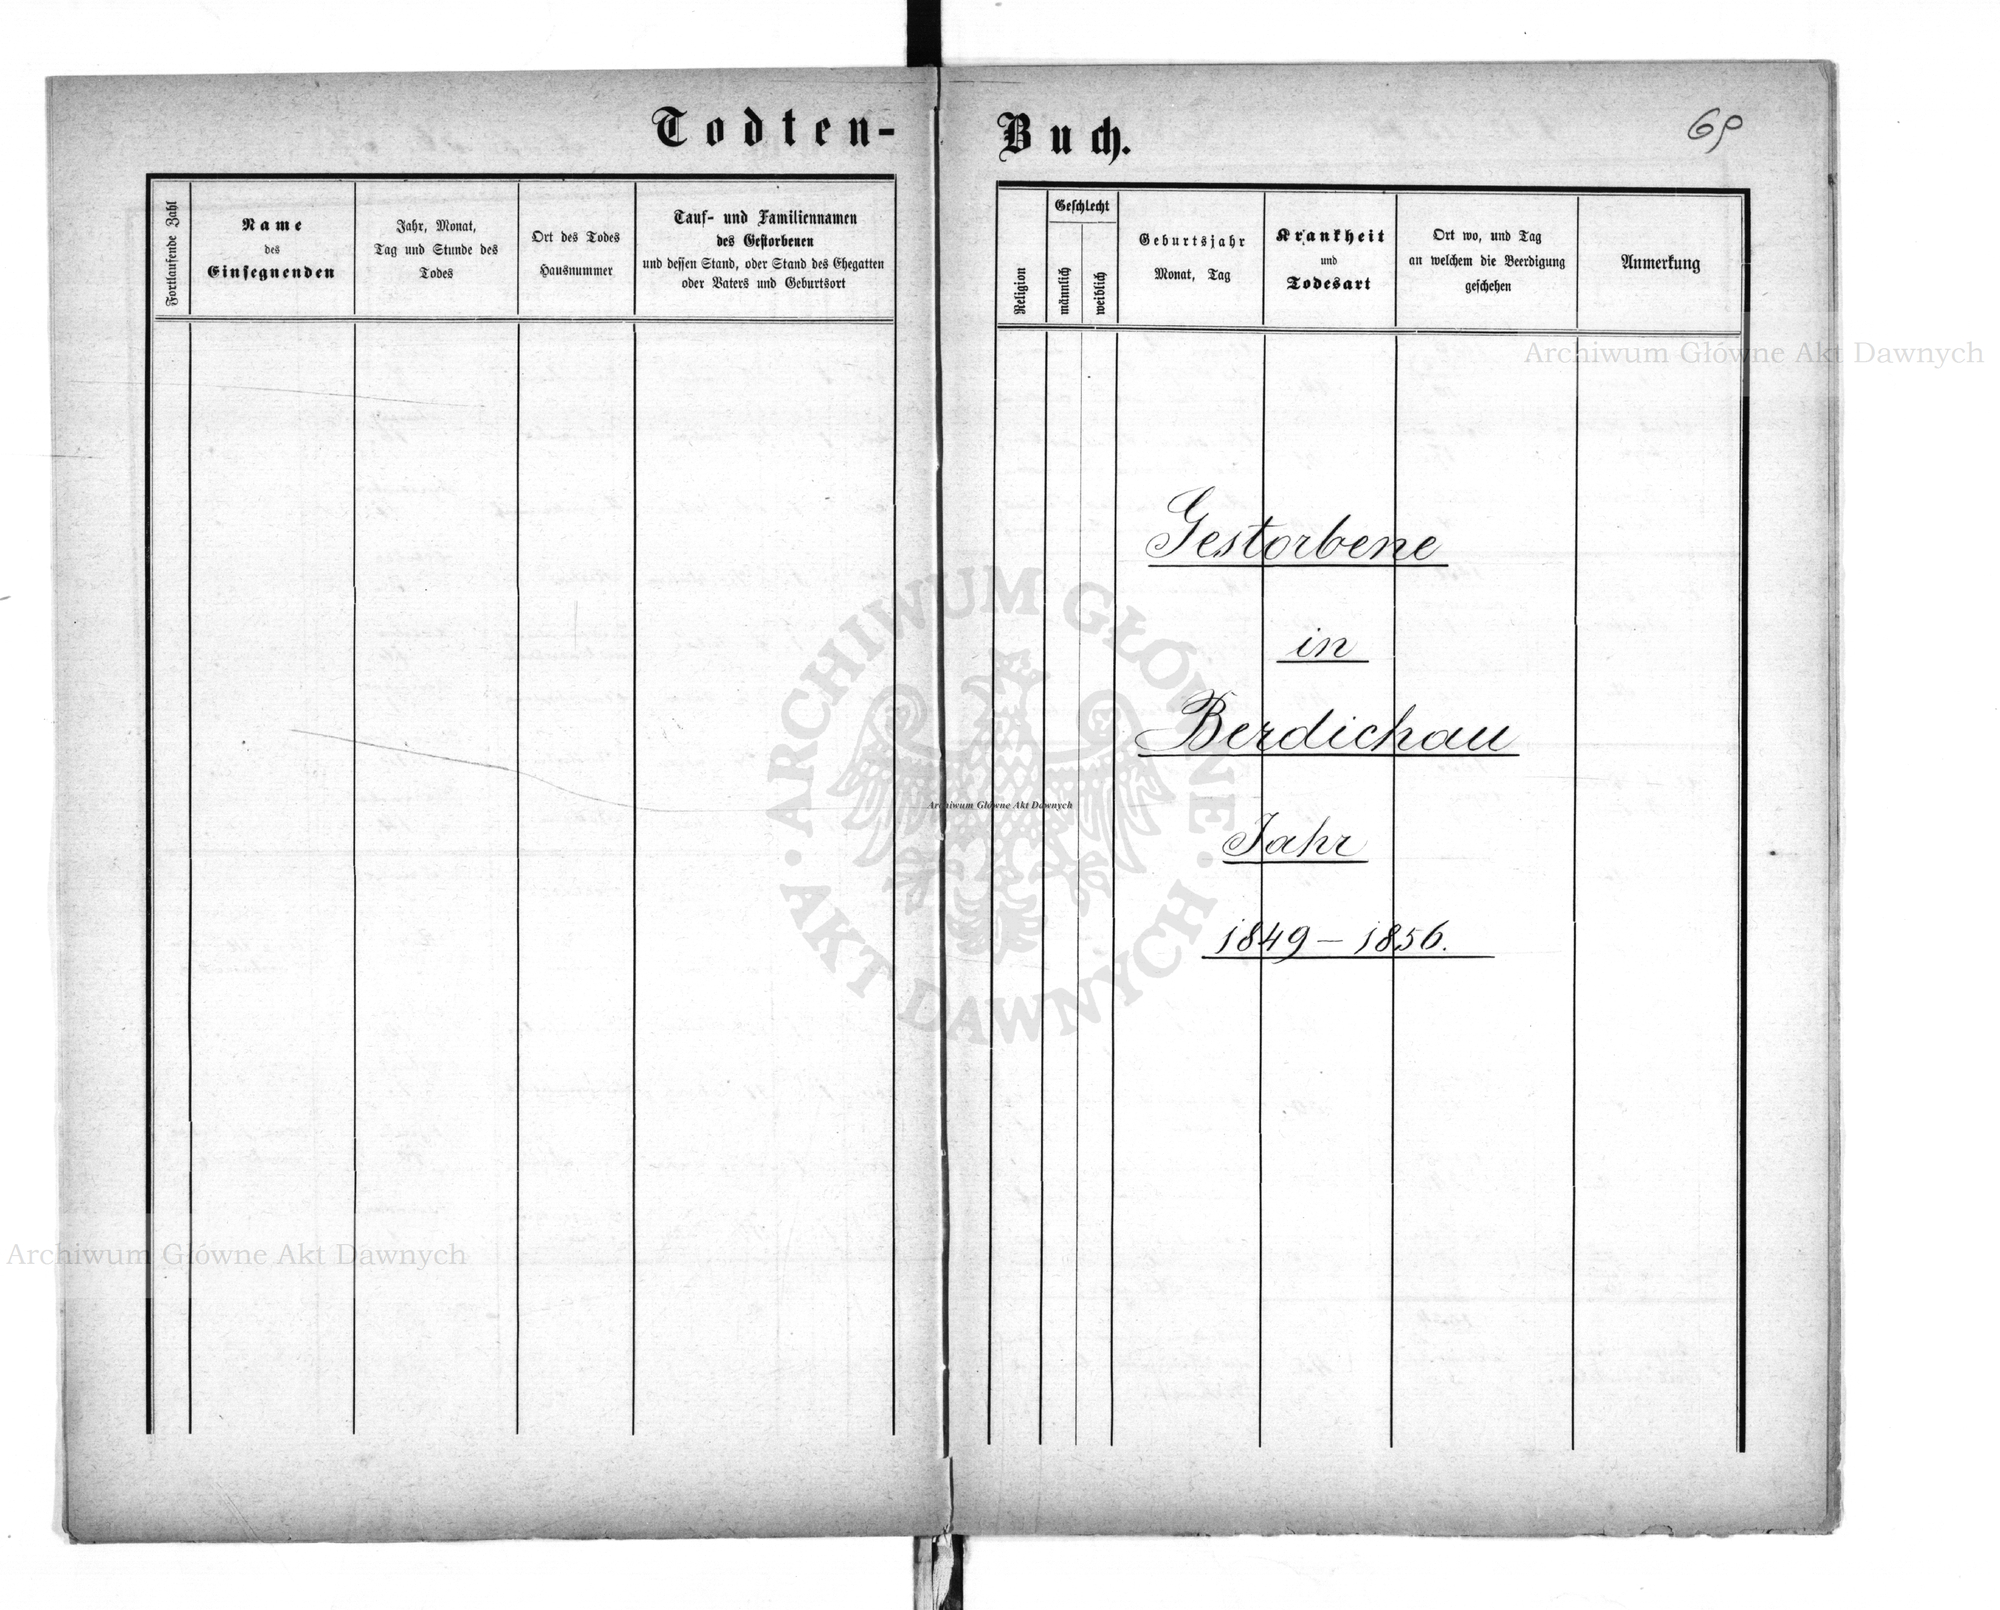 Todten-
Buch.
69
Fortlaufende Zahl
Name
des
Einsegnenden
Jahr, Monat,
Tag und Stunde des
Todes
Ort des Todes
Hausnummer
Tauf- und Familiennamen
des Gestorbenen
und dessen Stand, oder Stand des Ehegatten
oder Vaters und Geburtsort
Religion
Geschlecht
männlich
weiblich
Geburtsjahr
Monat, Tag
Krankheit
und
Todesart
Ort wo, und Tag
an welchem die Beerdigung
geschehen
Anmerkung
Archiwum Główne Akt Dawnych
Gestorbene
in
Berdichau
Jahr
1849 – 1856.
ARCHIWUM GŁÓWNE
AKT DAWNYCH
Archiwum Główne Akt Dawnych
Archiwum Główne Akt Dawnych